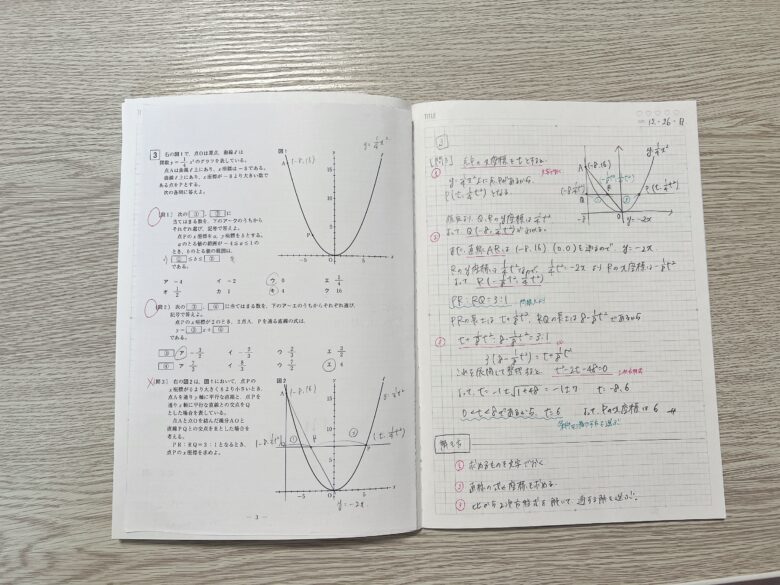 3 右の図1で、点Oは原点、曲線ℓは
関数y=1/4x²のグラフを表している。
点Aは曲線ℓ上にあり、x座標は-8である。
曲線ℓ上にあり、x座標が-8より大きい数で
ある点をPとする。
次の各問に答えよ。
〔問1〕 次の ① 、② に
当てはまる数を、下のア〜クのうちから
それぞれ選び、記号で答えよ。
点Pのx座標をa、y座標をbとする。
aのとる値の範囲が-4≦a≦1の
とき、bのとる値の範囲は、
① ≦b≦ ②
である。
ア -4 イ -2 ウ 0 エ 1/4
オ 1/2 カ 1 キ 4 ク 16
〔問2〕 次の ③ 、④ に当てはまる数を、下のア〜エのうちからそれぞれ選び、
記号で答えよ。
点Pのx座標が2のとき、2点A、Pを通る直線の式は、
y= ③ x+ ④
である。
③ ア -3/2 イ -2/3 ウ 2/3 エ 3/2
④ ア 7/3 イ 8/3 ウ 7/2 エ 4
〔問3〕 右の図2は、図1において、点Pの
x座標が0より大きく8より小さいとき、
点Aを通りy軸に平行な直線と、点Pを
通りx軸に平行な直線との交点をQ
とした場合を表している。
点Aと点Oを結んだ線分AOと
直線PQとの交点をRとした場合を
考える。
PR:RQ=3:1となるとき、
点Pのx座標を求めよ。
図1
y=1/4x²
A(-8,16)
15
10
5
P
-5
O
5
図2
A(-8,16)
y=1/4x²
15
10
(-8,1/4t²)
①
③
(t,1/4t²)
Q
R
P
5
-5
O
5
y=-2x
— 3 —
TITLE
12・26・
3
[問3] 点Pのx座標をtとすると、
①
y=1/4x²上に点Pがあるから、
P(t,1/4t²)となる。
y=1/4x²
A
(-8,1/4t²)
Q
R
P(t,1/4t²)
-8
O
y=-2x
よって Q(-8,1/4t²)
②
また、直線ARは(-8,16)(0,0)を通るので y=-2x
Rのy座標は1/4t²なので、1/4t²=-2xよりRのx座標は-1/8t²
よって R(-1/8t²,1/4t²)
PR:RQ=3:1
PRの長さは t+1/8t², RQの長さは 8-1/8t²であるから
③ t+1/8t²:8-1/8t²=3:1
3(8-1/8t²)=t+1/8t²
これを展開して整理すると t²+2t-48=0
よって、t=-1±√1+48=-1±7 t=-8,6
0<t<8であるから、t=6 よって、Pのx座標は6
解き方
① 求めるものを文字でおく
② 直線の式や座標を求める
③ 比から2次方程式を解いて、適する解を選ぶ。